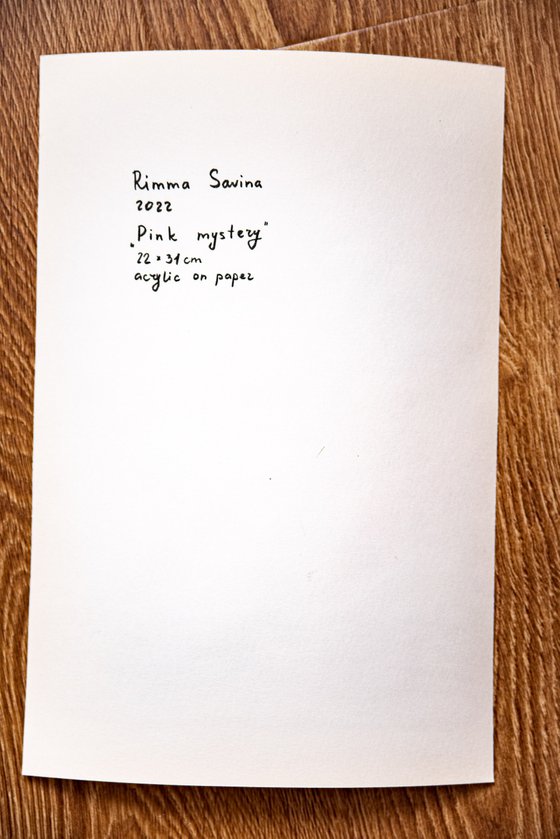 Rimma Savina
2022
„Pink mystery"
22 × 31 cm
acrylic on paper